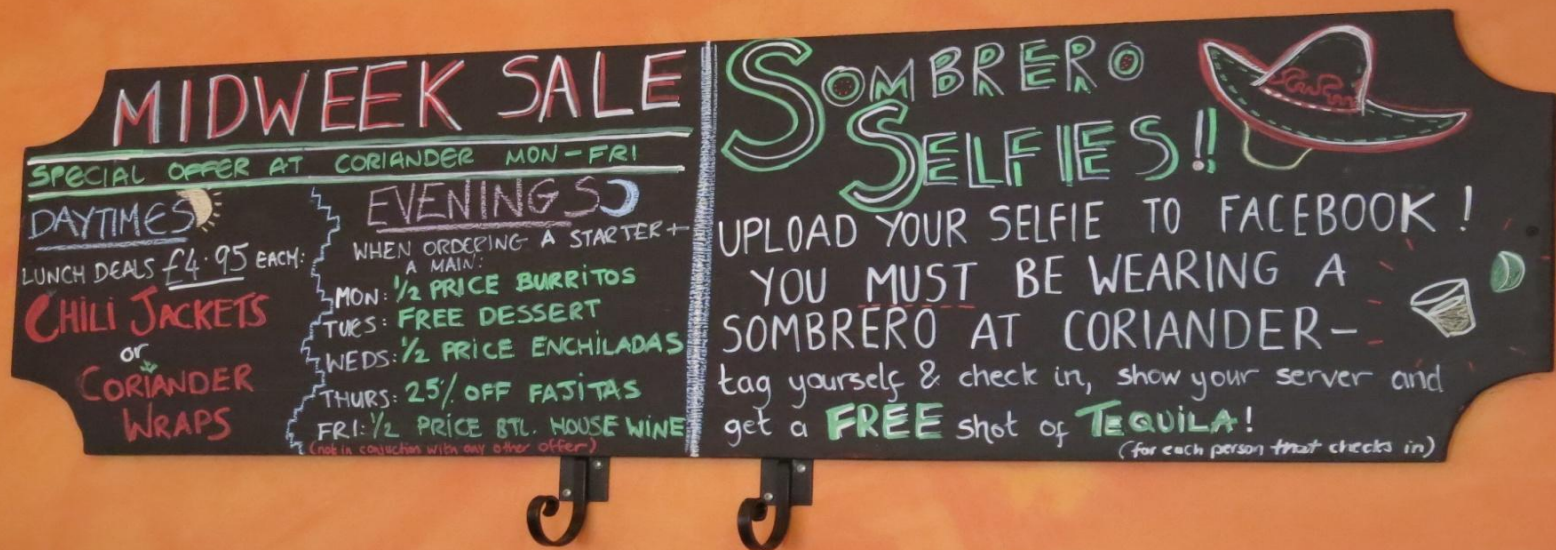 MIDWEEK SALE
SPECIAL OFFER AT CORIANDER MON-FRI
DAYTIMES
LUNCH DEALS £4.95 EACH:
CHILI JACKETS
or
CORIANDER
WRAPS
EVENINGS
WHEN ORDERING A STARTER+
A MAIN:
MON: 1/2 PRICE BURRITOS
TUES: FREE DESSERT
WEDS: 1/2 PRICE ENCHILADAS
THURS: 25% OFF FAJITAS
FRI: 1/2 PRICE BTL. HOUSE WINE
(not in conjuction with any other offer)
SOMBRERO
SELFIES!!
UPLOAD YOUR SELFIE TO FACEBOOK!
YOU MUST BE WEARING A
SOMBRERO AT CORIANDER-
tag yourself & check in, show your server and
get a FREE shot of TEQUILA!
(for each person that checks in)